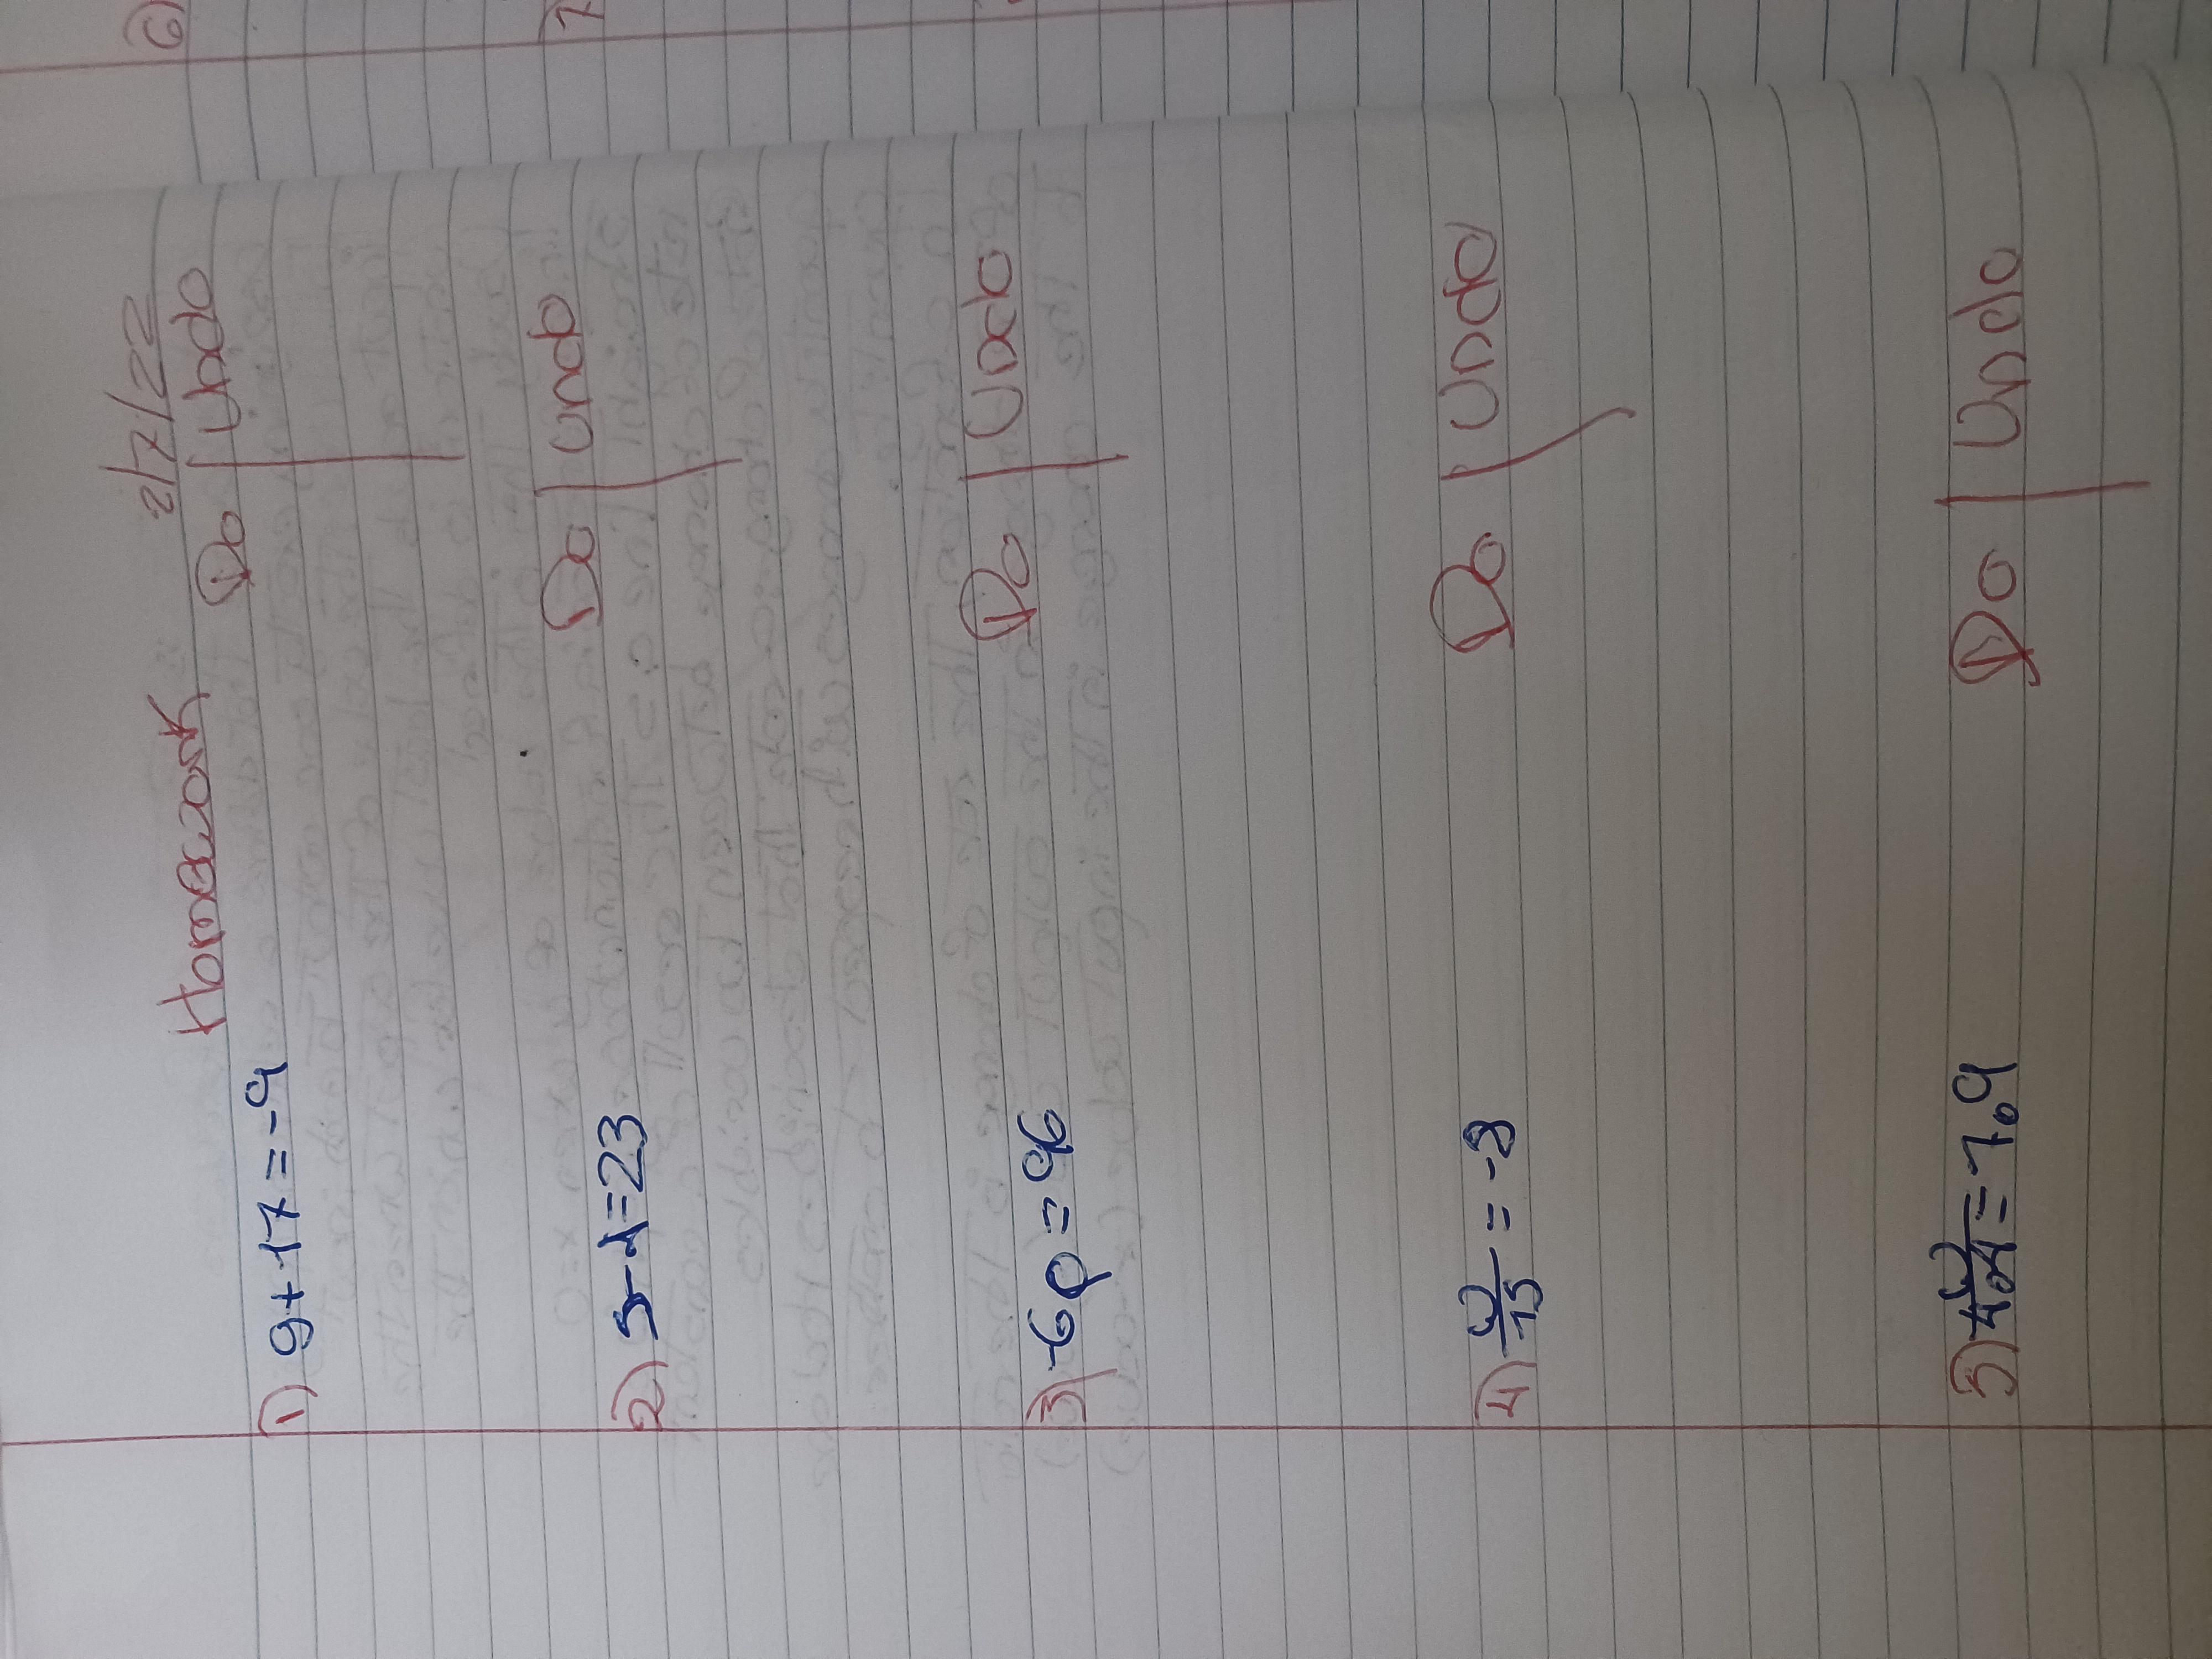 Homework 2/7/22
Do | Undo
1) g+17=-9
Do | Undo
2) =23
Do | Undo
3) -6p=96
Do | Undo
4) w/15 = -8
Do | Undo
5) =7.9
6)
7